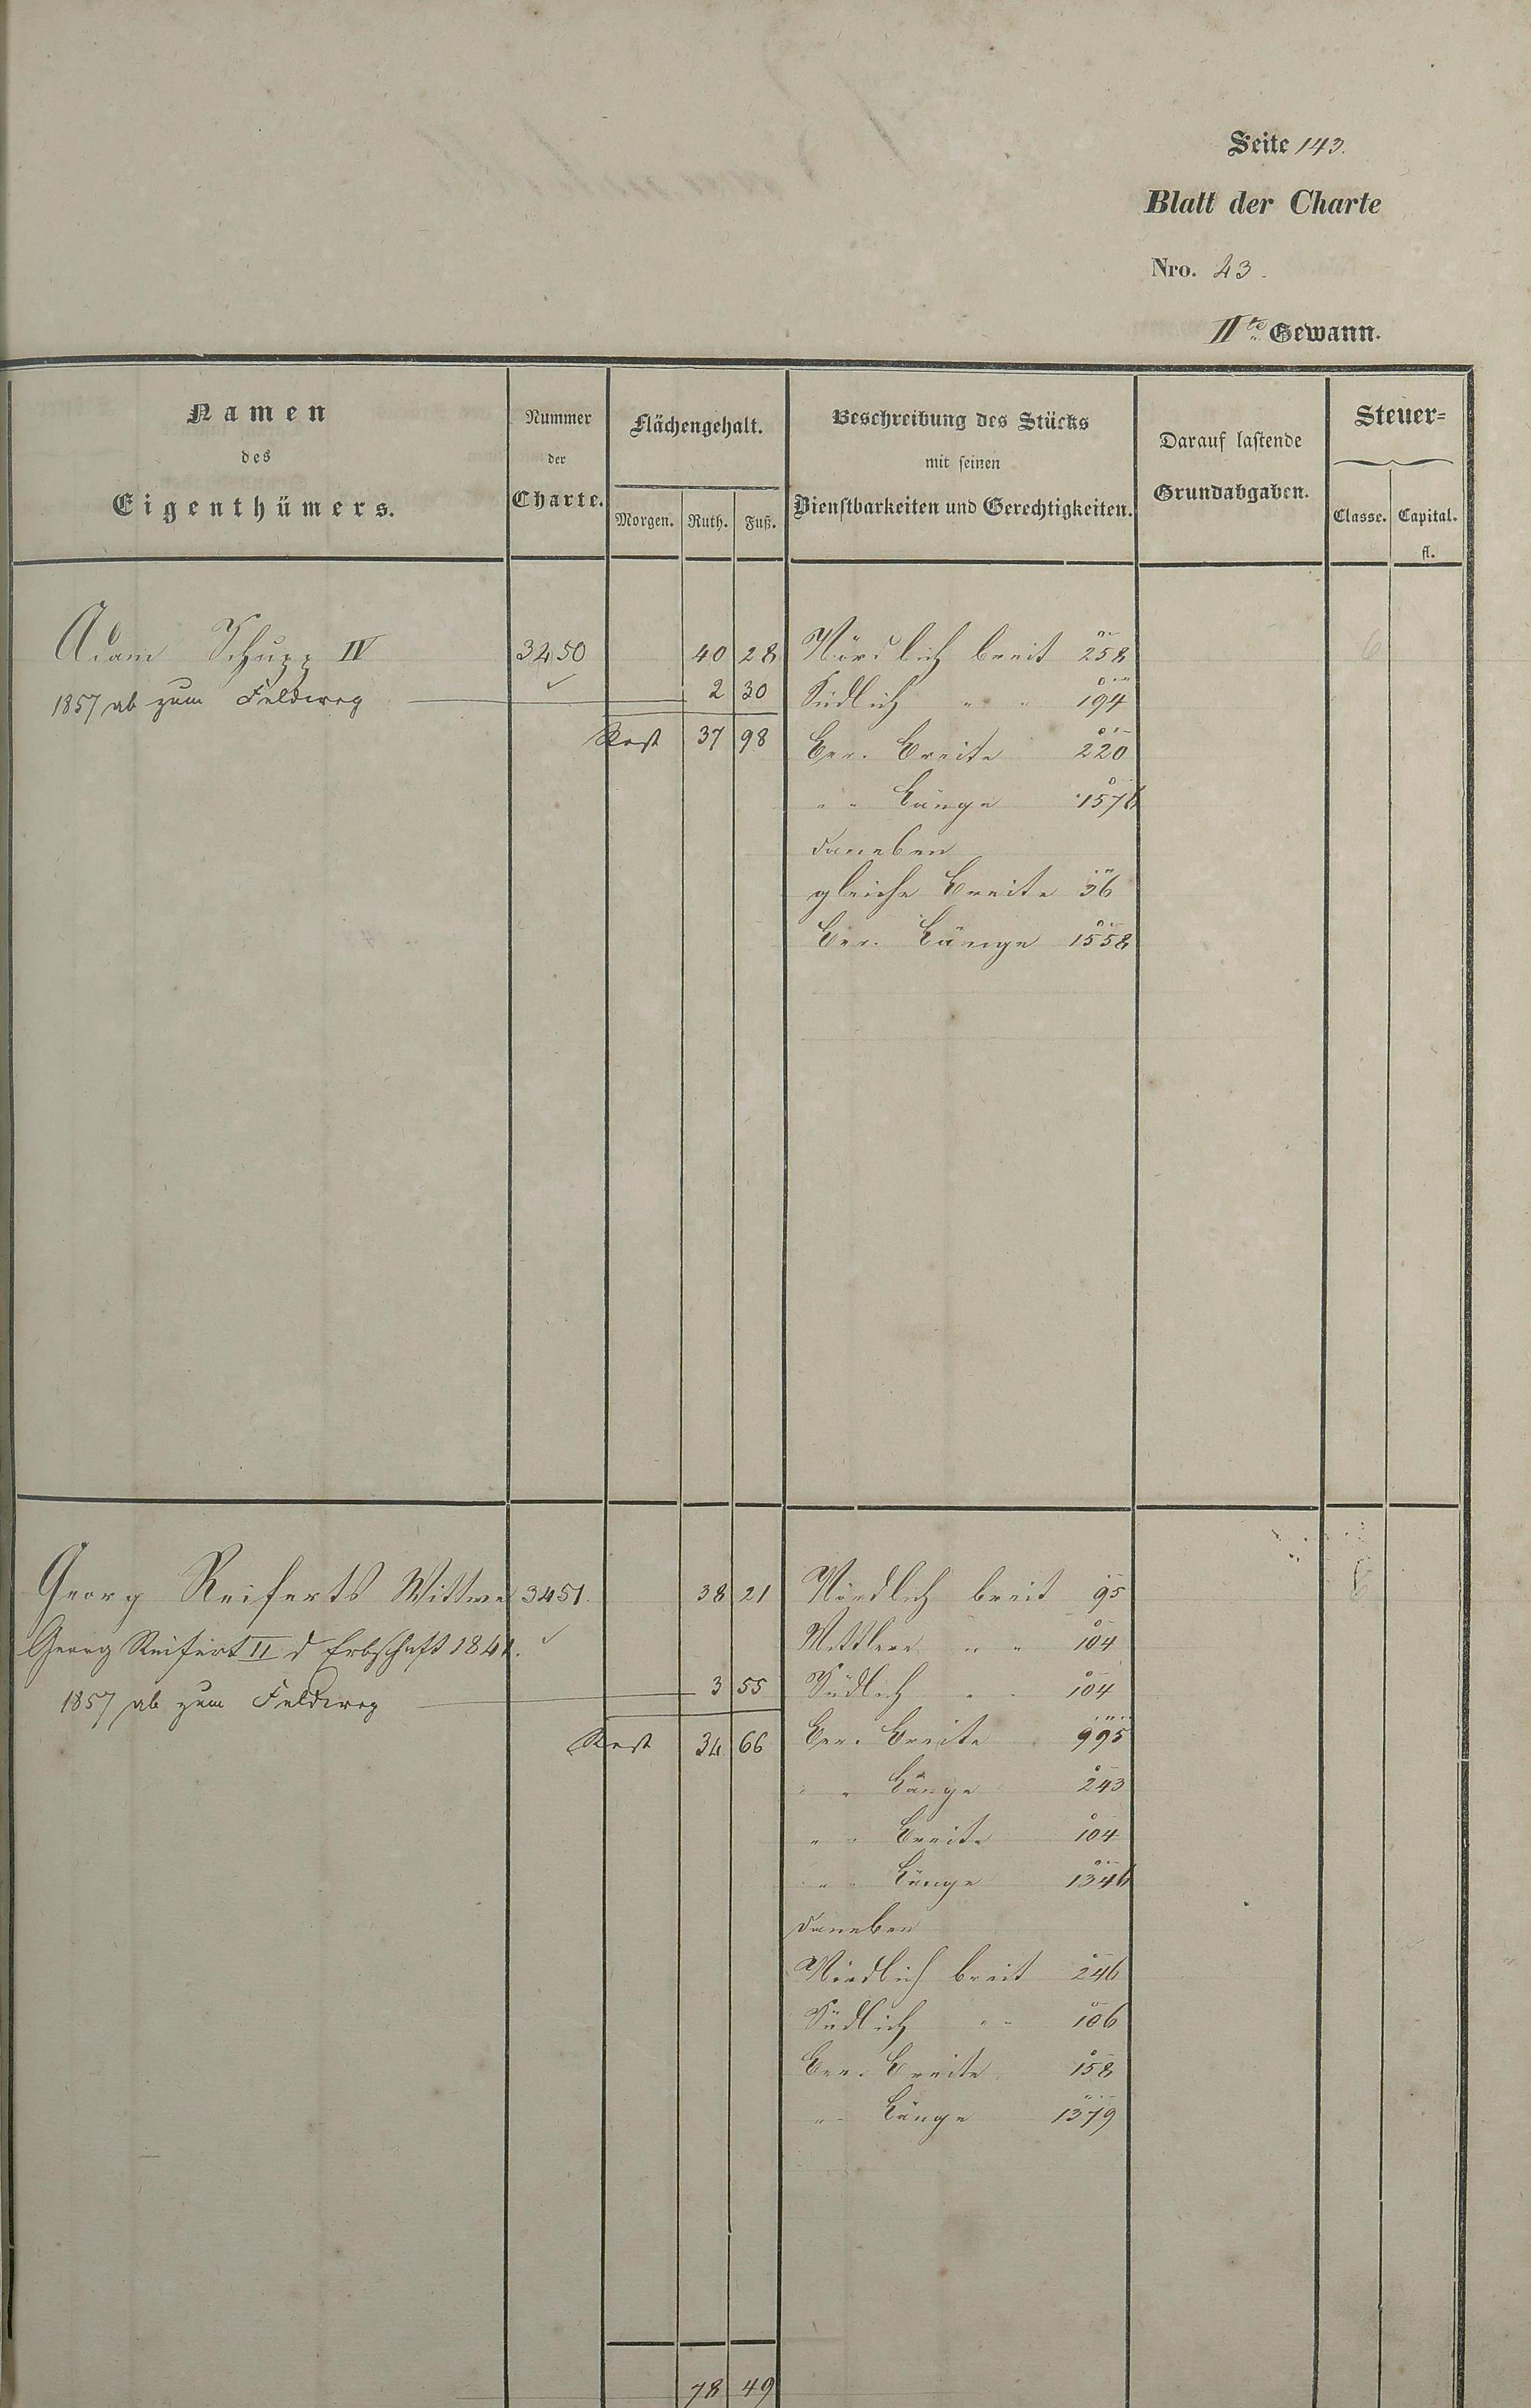 Seite 143.
Blatt der Charte
Nro. 23.
IIte Gewann.
Namen des Eigenthümers.
Nummer der Charte.
Flächengehalt.
Morgen. Ruth. Fuß.
Beschreibung des Stücks mit seinen Dienstbarkeiten und Gerechtigkeiten.
Darauf lastende Grundabgaben.
Steuer=
Classe. Capital.
fl.
Adam Schupp IV 3450 40 28 Nördlich breit 258 6
1857 ab zum Feldweg 2 30 Südlich " " 194
Rest 37 98 Ber. Breite 220
" " Länge 1576
daneben
gleiche Breite 36
Ber. Länge 1558
Georg Reiferts Wittwe 3451. 38 21 Nördlich breit 95 6
Georg Reifert II d Erbschaft 1841. Mittlere " " 104
1857 ab zum Feldweg 3 55 Südlich " " 104
Rest 34 66 Ber. Breite 995
" " Länge 243
" " Breite 104
" " Länge 1346
daneben
Nördlich breit 246
Südlich " " 106
Ber. Breite 158
" " Länge 1379
78 49